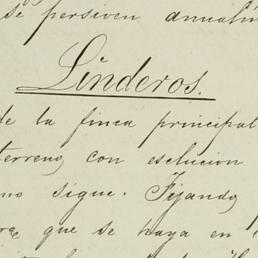 se persiven anualm
Linderos.
de la finca principal
terreno, con esclucion
mo sigue. Fijando,
que se haya en